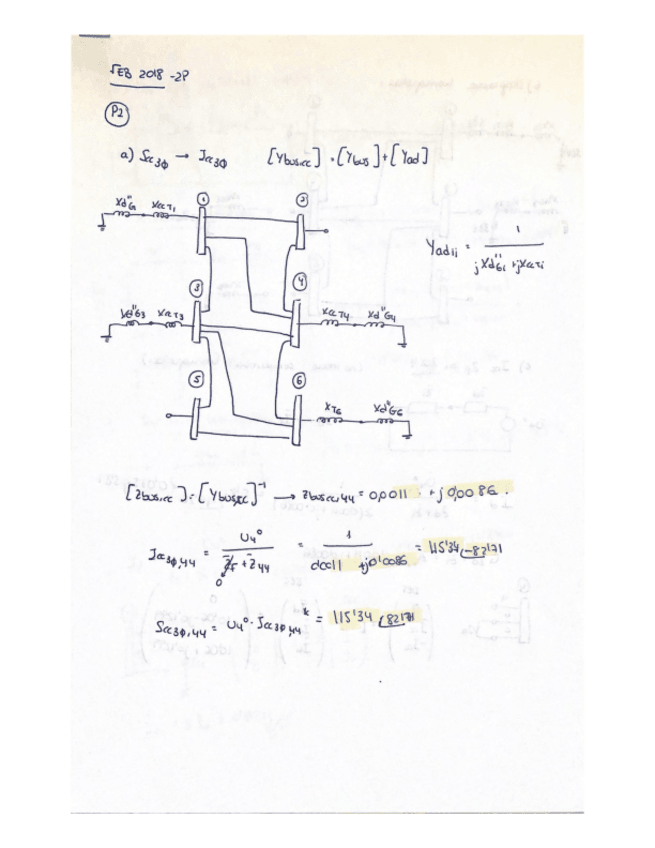 FEB 2018 -2P
P2
a) Scc3φ → Icc3φ [Ybus,cc] = [Ybus] + [Yad]
Xd"G XccT1 1 2
Yadii = 1 / jXd"Gi + jXccTi
3 4
Xd"G3 XccT3 XccT4 Xd"G4
5 6
XT6 Xd"G6
[Zbus,cc] = [Ybus,cc]⁻¹ → Zbuscc,44 = 0,0011 + j0,0086.
Icc3φ,44 = U4⁰ / Zf + Z44 = 1 / 0'0011 + j0'0086 = 115'34 -82'71
0
Scc3φ,44 = U4⁰ · Icc3φ,44* = 115'34 82'71